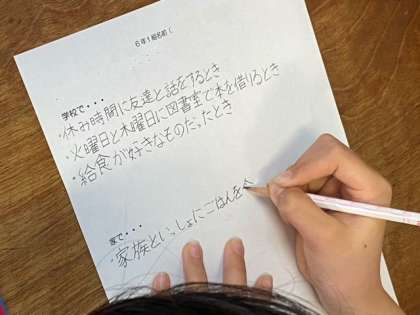 6年1組名前(
学校で・・・
・休み時間に友達と話をするとき
・火曜日と木曜日に図書室で本を借りるとき
・給食が好きなものだったとき
家で・・・
・家族といっしょにごはんを